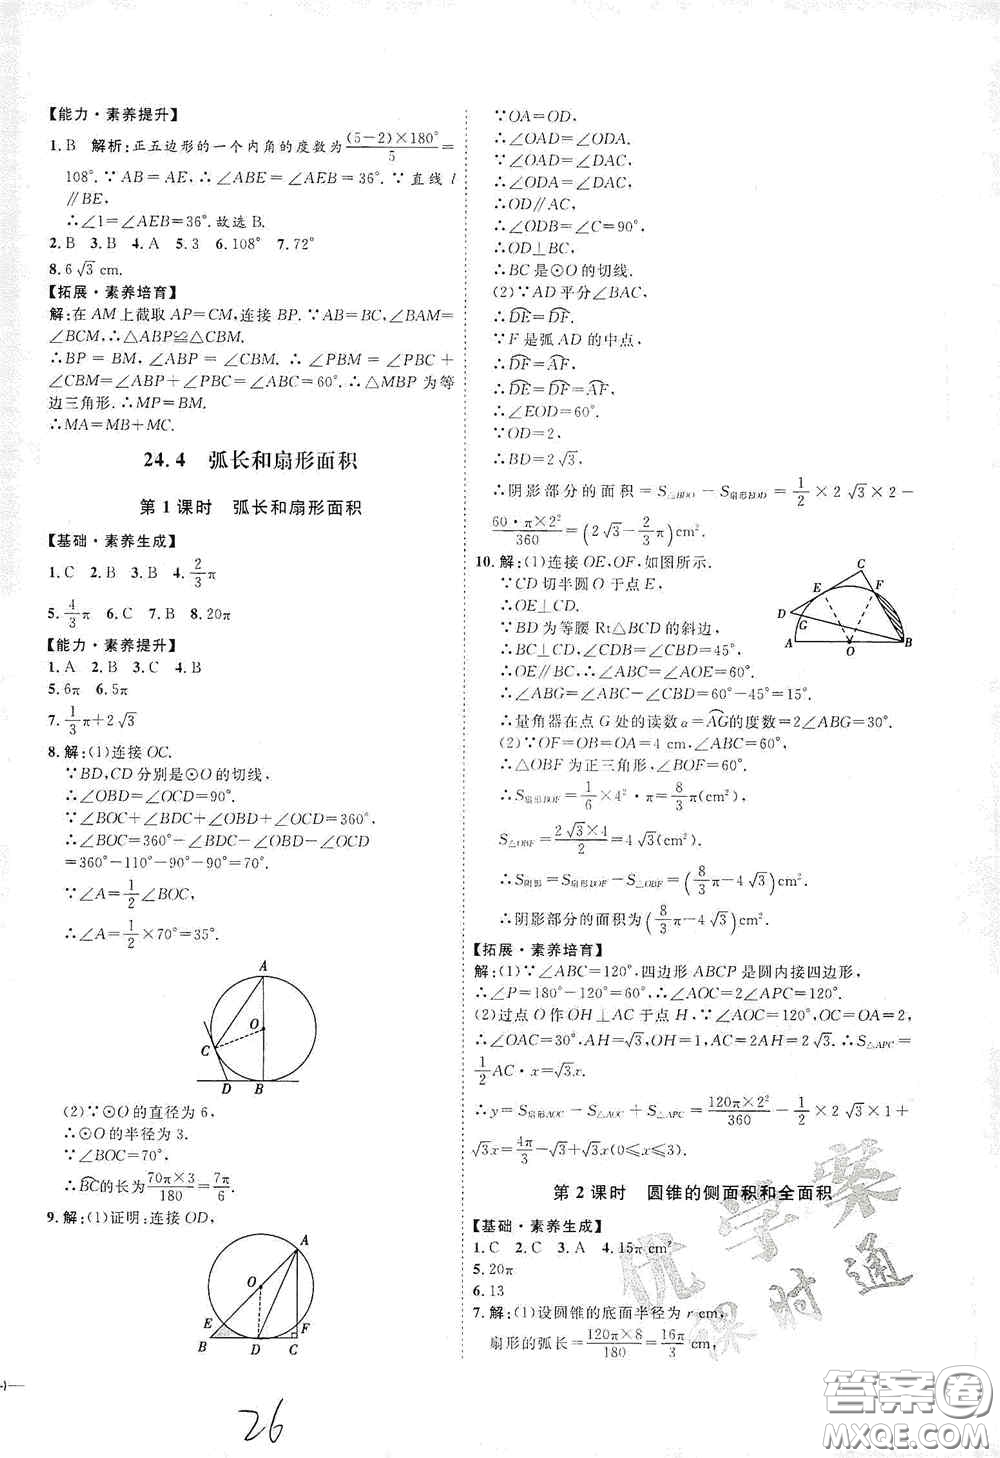 【能力·素养提升】
1.B 解析:正五边形的一个内角的度数为(5-2)×180°/5=
108°.∵AB=AE,∴∠ABE=∠AEB=36°.∵直线 l
∥BE,
∴∠1=∠AEB=36°.故选 B.
2.B 3.B 4.A 5.3 6.108° 7.72°
8.6√3 cm.
【拓展·素养培育】
解:在 AM 上截取 AP=CM,连接 BP.∵AB=BC,∠BAM=
∠BCM,∴△ABP≌△CBM.
∴BP=BM,∠ABP=∠CBM.∴∠PBM=∠PBC+
∠CBM=∠ABP+∠PBC=∠ABC=60°.∴△MBP 为等
边三角形.∴MP=BM.
∴MA=MB+MC.
24.4 弧长和扇形面积
第 1 课时 弧长和扇形面积
【基础·素养生成】
1.C 2.B 3.B 4.2/3π
5.4/3π 6.C 7.B 8.20π
【能力·素养提升】
1.A 2.B 3.C 4.B
5.6π 6.5π
7.1/3π+2√3
8.解:(1)连接 OC.
∵BD,CD 分别是⊙O 的切线,
∴∠OBD=∠OCD=90°.
∵∠BOC+∠BDC+∠OBD+∠OCD=360°
∴∠BOC=360°-∠BDC-∠OBD-∠OCD
=360°-110°-90°-90°=70°.
∵∠A=1/2∠BOC,
∴∠A=1/2×70°=35°.
A
O
C
D B
(2)∵⊙O 的直径为 6,
∴⊙O 的半径为 3.
∵∠BOC=70°,
∴BC的长为70π×3/180=7π/6.
9.解:(1)证明:连接 OD,
A
O
E F
B D C
26
∵OA=OD,
∴∠OAD=∠ODA.
∵∠OAD=∠DAC,
∴∠ODA=∠DAC.
∴OD∥AC,
∴∠ODB=∠C=90°.
∴OD⊥BC.
∴BC 是⊙O 的切线.
(2)∵AD 平分∠BAC,
∴DE=DF.
∵F 是弧 AD 的中点,
∴DF=AF,
∴DE=DF=AF.
∴∠EOD=60°.
∵OD=2,
∴BD=2√3.
∴阴影部分的面积=S△BDO-S扇形EOD=1/2×2√3×2-
60·π×2²/360=(2√3-2/3π)cm².
10.解:(1)连接 OE,OF,如图所示.
∵CD 切半圆 O 于点 E,
∴OE⊥CD.
∵BD 为等腰 Rt△BCD 的斜边,
∴BC⊥CD,∠CDB=∠CBD=45°,
∴OE∥BC,∴∠ABC=∠AOE=60°.
∴∠ABG=∠ABC-∠CBD=60°-45°=15°.
∴量角器在点 G 处的读数 α=AG的度数=2∠ABG=30°.
(2)∵OF=OB=OA=4 cm,∠ABC=60°,
∴△OBF 为正三角形,∠BOF=60°.
∴S扇形BOF=1/6×4²·π=8/3π(cm²),
S△OBF=2√3×4/2=4√3(cm²).
∴S阴影=S扇形BOF-S△OBF=(8/3π-4√3)cm².
∴阴影部分的面积为(8/3π-4√3)cm².
C
E F
D
G
A O B
【拓展·素养培育】
解:(1)∵∠ABC=120°,四边形 ABCP 是圆内接四边形,
∴∠P=180°-120°=60°,∴∠AOC=2∠APC=120°.
(2)过点 O 作 OH⊥AC 于点 H,∵∠AOC=120°,OC=OA=2,
∴∠OAC=30°.AH=√3,OH=1,AC=2AH=2√3.∴S△APC=
1/2AC·x=√3x.
∴y=S扇形AOC-S△AOC+S△APC=120π×2²/360-1/2×2√3×1+
√3x=4π/3-√3+√3x(0≤x≤3).
第 2 课时 圆锥的侧面积和全面积
【基础·素养生成】
1.C 2.C 3.A 4.15π cm²
5.20π
6.13
7.解:(1)设圆锥的底面半径为 r cm,
扇形的弧长=120π×8/180=16π/3 cm,
优学案
课时通
答案卷
MXQE.COM